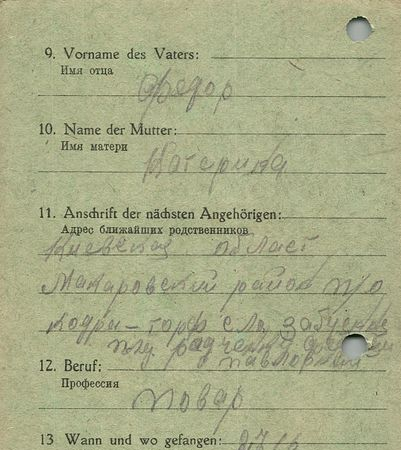 9. Vorname des Vaters:
Имя отца
Федор
10. Name der Mutter:
Имя матери
Катерина
11. Anschrift der nächsten Angehörigen:
Адрес ближайших родственников
Киевская област
Макаровский район п/о
кодра – торф село забуяне
12. Beruf:
Профессия
повар
13 Wann und wo gefangen: